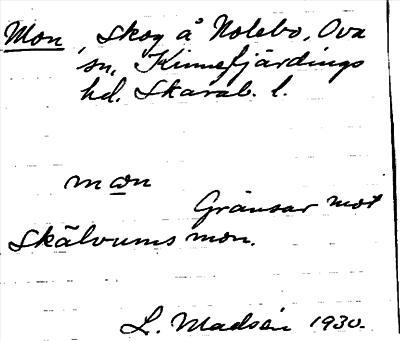 Mon, skog å Nolebo, Ova
sn, Kinnefjärdings
hd. Skarab. l.
mon
Gränsar mot
Skälvums mon.
L. Madsén 1930.